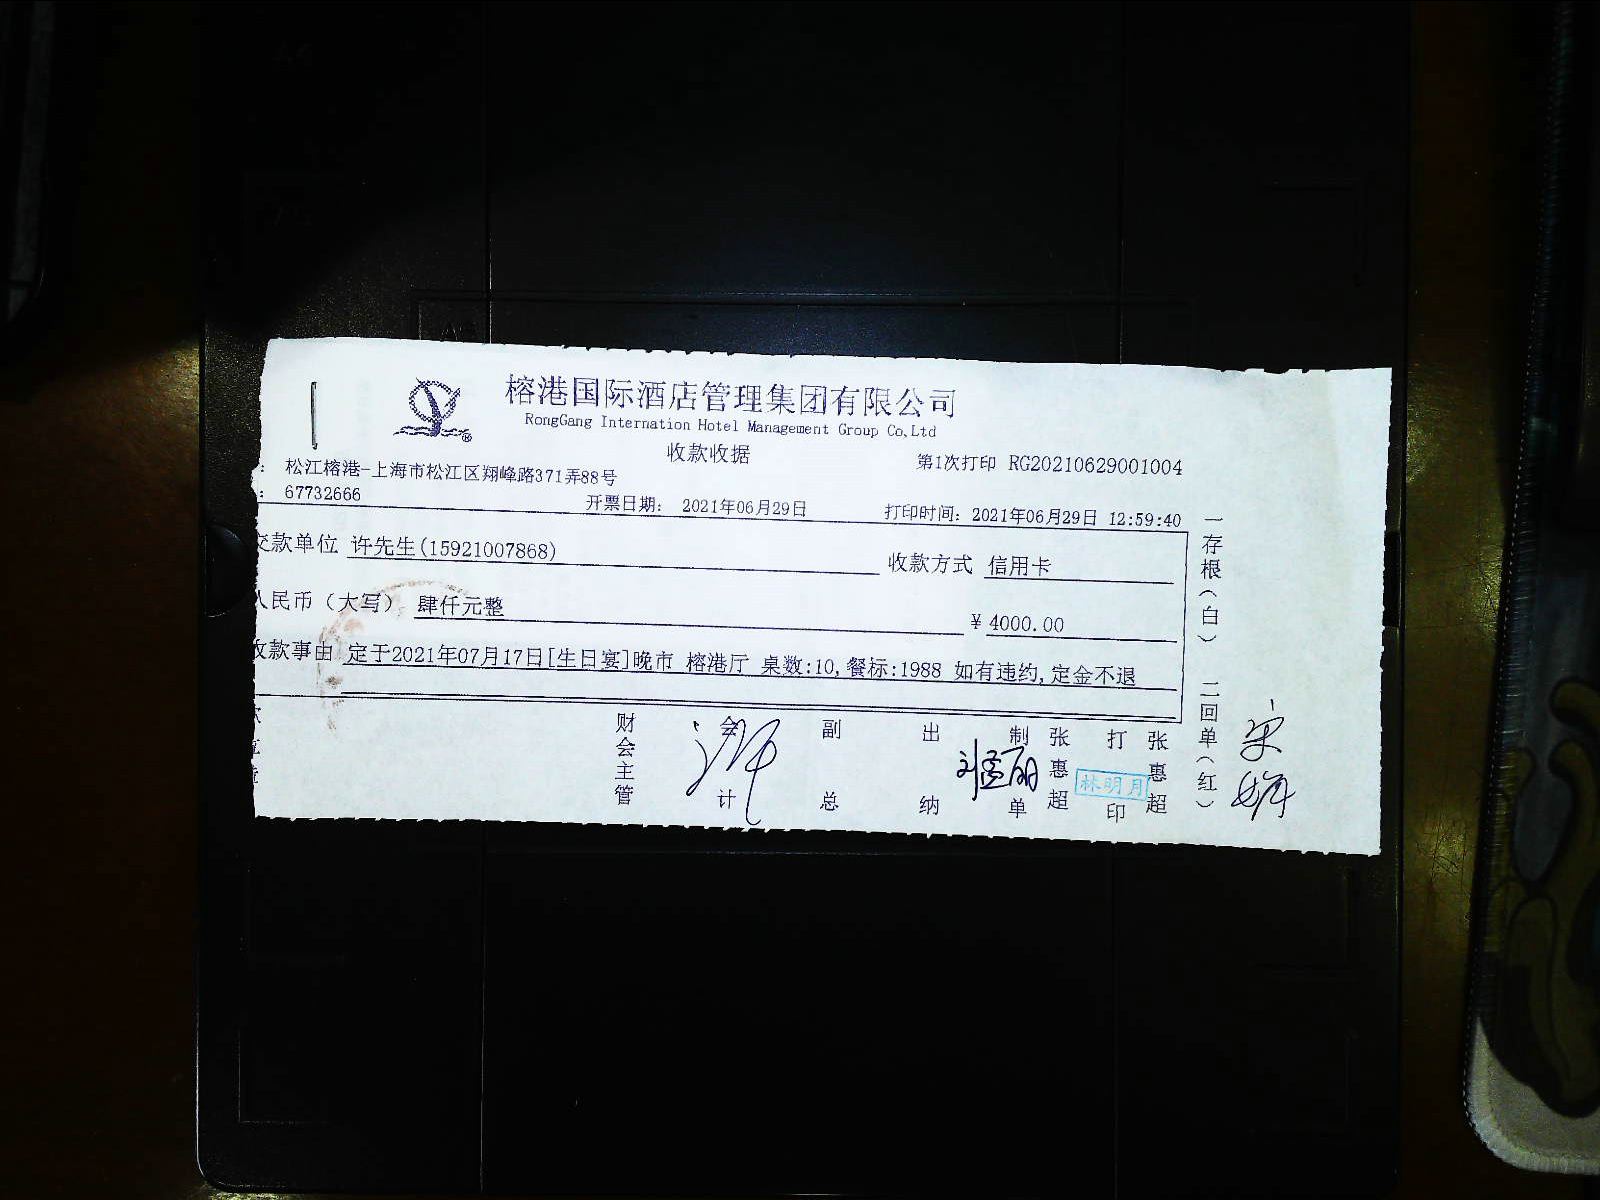 榕港国际酒店管理集团有限公司
RongGang Internation Hotel Management Group Co,Ltd
收款收据
第1次打印 RG20210629001004
：松江榕港-上海市松江区翔峰路371弄88号
：67732666
开票日期： 2021年06月29日
打印时间：2021年06月29日 12:59:40
交款单位 许先生(15921007868)
收款方式 信用卡
人民币（大写） 肆仟元整
¥ 4000.00
收款事由 定于2021年07月17日[生日宴]晚市 榕港厅 桌数:10,餐标:1988 如有违约,定金不退
财会主管
会计
副总
出纳
制单
张惠超
打印
张惠超
林明月
一存根（白）
二回单（红）